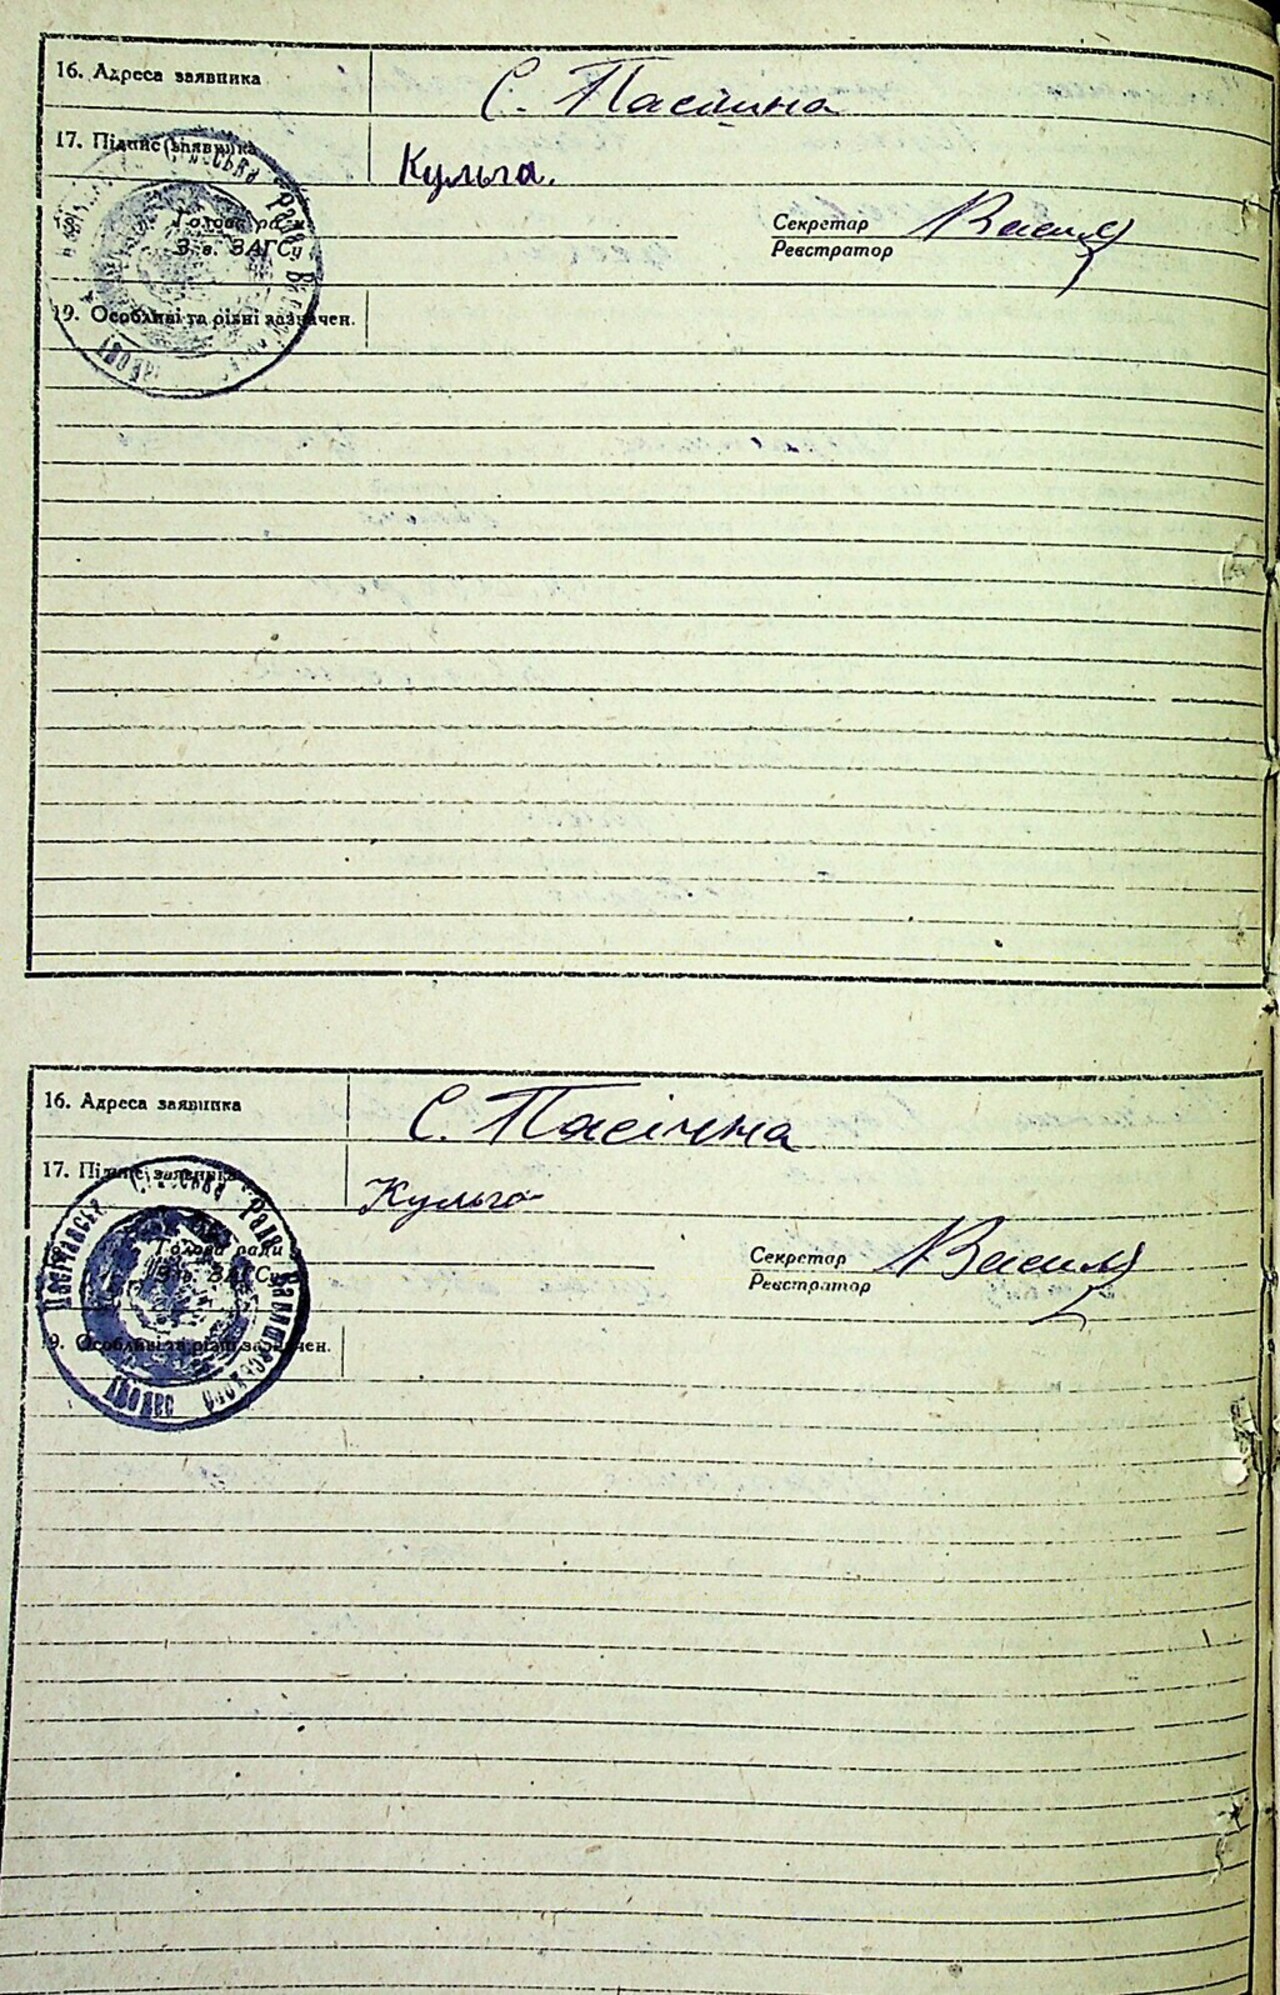 16. Адреса заявника
С. Пасічна
17. Підпис заявника
Кульга.
Голова ради
Зав. ЗАГСу
Секретар
Реєстратор
19. Особливі та різні зазначен.
16. Адреса заявника
С. Пасічна
17. Підпис заявника
Кульга
Голова ради
Зав. ЗАГСу
Секретар
Реєстратор
19. Особливі та різні зазначен.